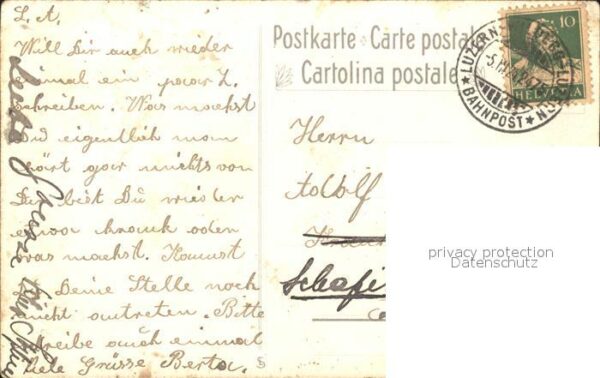 L. A.
Will Dir auch wieder
einmal ein paar Z.
schreiben. Was machst
Du eigentlich man
hört gar nichts von
Dir bist Du wieder
krank oder
was machst. Kannst
Deine Stelle noch
nicht antreten. Bitte
schreibe auch einmal
viele Grüsse Berta.
Postkarte Carte postale
Cartolina postale
Herrn
Adolf
10
HELVETIA
LUZERN
BAHNPOST
privacy protection
Datenschutz